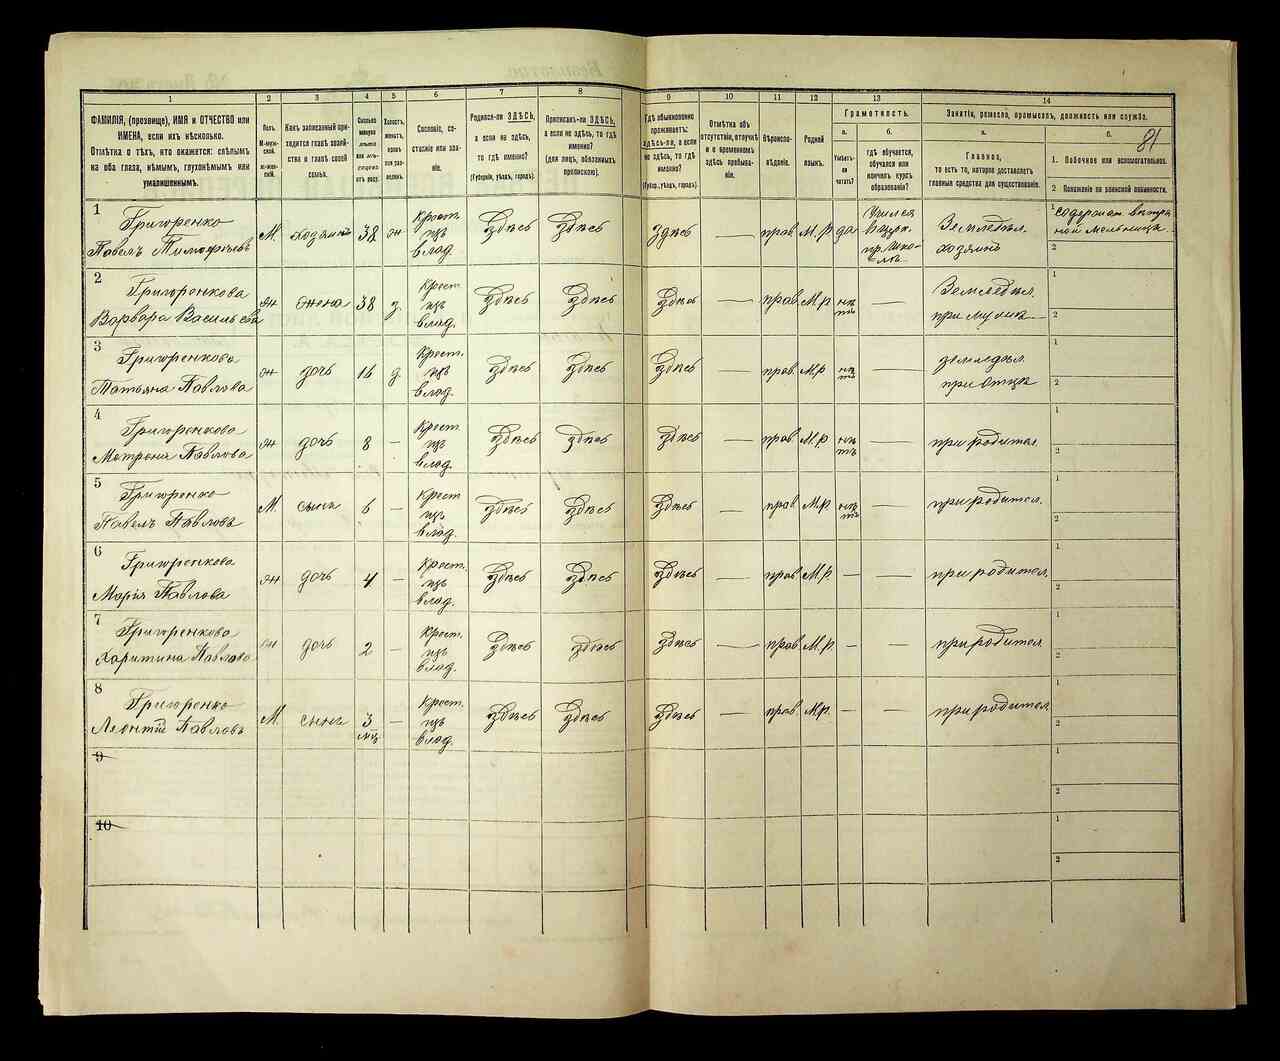 1 2 3 4 5 6 7 8 9 10 11 12 13 14
ФАМИЛІЯ, (прозвище), ИМЯ и ОТЧЕСТВО или
ИМЕНА, если ихъ нѣсколько.
Отмѣтка о тѣхъ, кто окажется: слѣпымъ
на оба глаза, нѣмымъ, глухонѣмымъ или
умалишеннымъ.
Полъ.
М-мужской.
ж-женскій.
Какъ записанный при-
ходится главѣ хозяй-
ства и главѣ своей
семьи.
Сколько
минуло
лѣтъ
или мѣ-
сяцевъ
отъ роду.
Холостъ,
женатъ,
вдовъ
или раз-
веденъ.
Сословіе, со-
стояніе или зва-
ніе.
Родился-ли ЗДѢСЬ,
а если не здѣсь,
то гдѣ именно?
(Губернія, уѣздъ, городъ).
Приписанъ-ли ЗДѢСЬ,
а если не здѣсь, то гдѣ
именно?
(для лицъ, обязанныхъ
припискою).
Гдѣ обыкновенно
проживаетъ:
здѣсь-ли, а если
не здѣсь, то гдѣ
именно?
(Губерн., уѣздъ, городъ).
Отмѣтка объ
отсутствіи, отлучкѣ
и о временномъ
здѣсь пребыва-
ніи.
Вѣроиспо-
вѣданіе.
Родной
языкъ.
Грамотность.
а.
Умѣетъ-
ли
читать?
б.
гдѣ обучается,
обучался или
кончилъ курсъ
образованія?
Занятіе, ремесло, промыселъ, должность или служба.
а.
Главное,
то есть то, которое доставляетъ
главныя средства для существованія.
б.
81
1. Побочное или вспомогательное.
2 Положеніе по воинской повинности.
1
Григоренко
Павелъ Тимофѣевъ
М. хозяинъ 38 ж
Крест.
изъ
влад.
здѣсь здѣсь здѣсь — прав. М. р да
Учился
въ церк.
пр. шко-
лѣ
Земледѣл.
хозяинъ
1 содержат вѣтря
ной мельницы.
2
2
Григоренкова
Варвара Васильева
ж жена 38 з.
Крест
изъ
влад.
здѣсь здѣсь здѣсь — прав. М.р. нѣ
тъ —
Земледѣл.
при мужѣ
1
2
3
Григоренкова
Татьяна Павлова
ж дочь 16 д
Крест.
изъ
влад.
здѣсь здѣсь здѣсь — прав. М.р нѣ
тъ —
земледѣл.
при отцѣ
1
2
4
Григоренкова
Матрона Павлова
ж дочь 8 —
Крест.
изъ
влад.
здѣсь здѣсь здѣсь — прав. М.р нѣ
тъ —
при родител.
1
2
5
Григоренко
Павелъ Павловъ
М. сынъ 6 —
Крест
изъ
влад.
здѣсь здѣсь здѣсь — прав. М.р. нѣ
тъ —
при родител.
1
2
6
Григоренкова
Марія Павлова
ж дочь 4 —
Крест.
изъ
влад.
здѣсь здѣсь здѣсь — прав. М.р. — —
при родител.
1
2
7
Григоренкова
Харитина Павлова
ж дочь 2 —
Крест.
изъ
влад.
здѣсь здѣсь здѣсь — прав. М.р. — —
при родител.
1
2
8
Григоренко
Леонтій Павловъ
М. сынъ 3
мц —
Крест.
изъ
влад.
здѣсь здѣсь здѣсь — прав. М.р. — —
при родител.
1
2
9
1
2
10
1
2